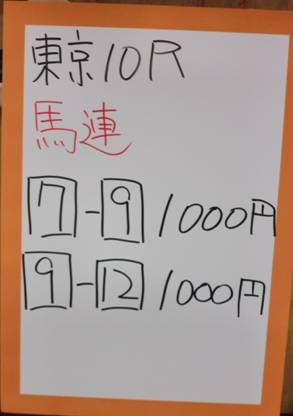 東京10R
馬連
7-9 1000円
9-12 1000円